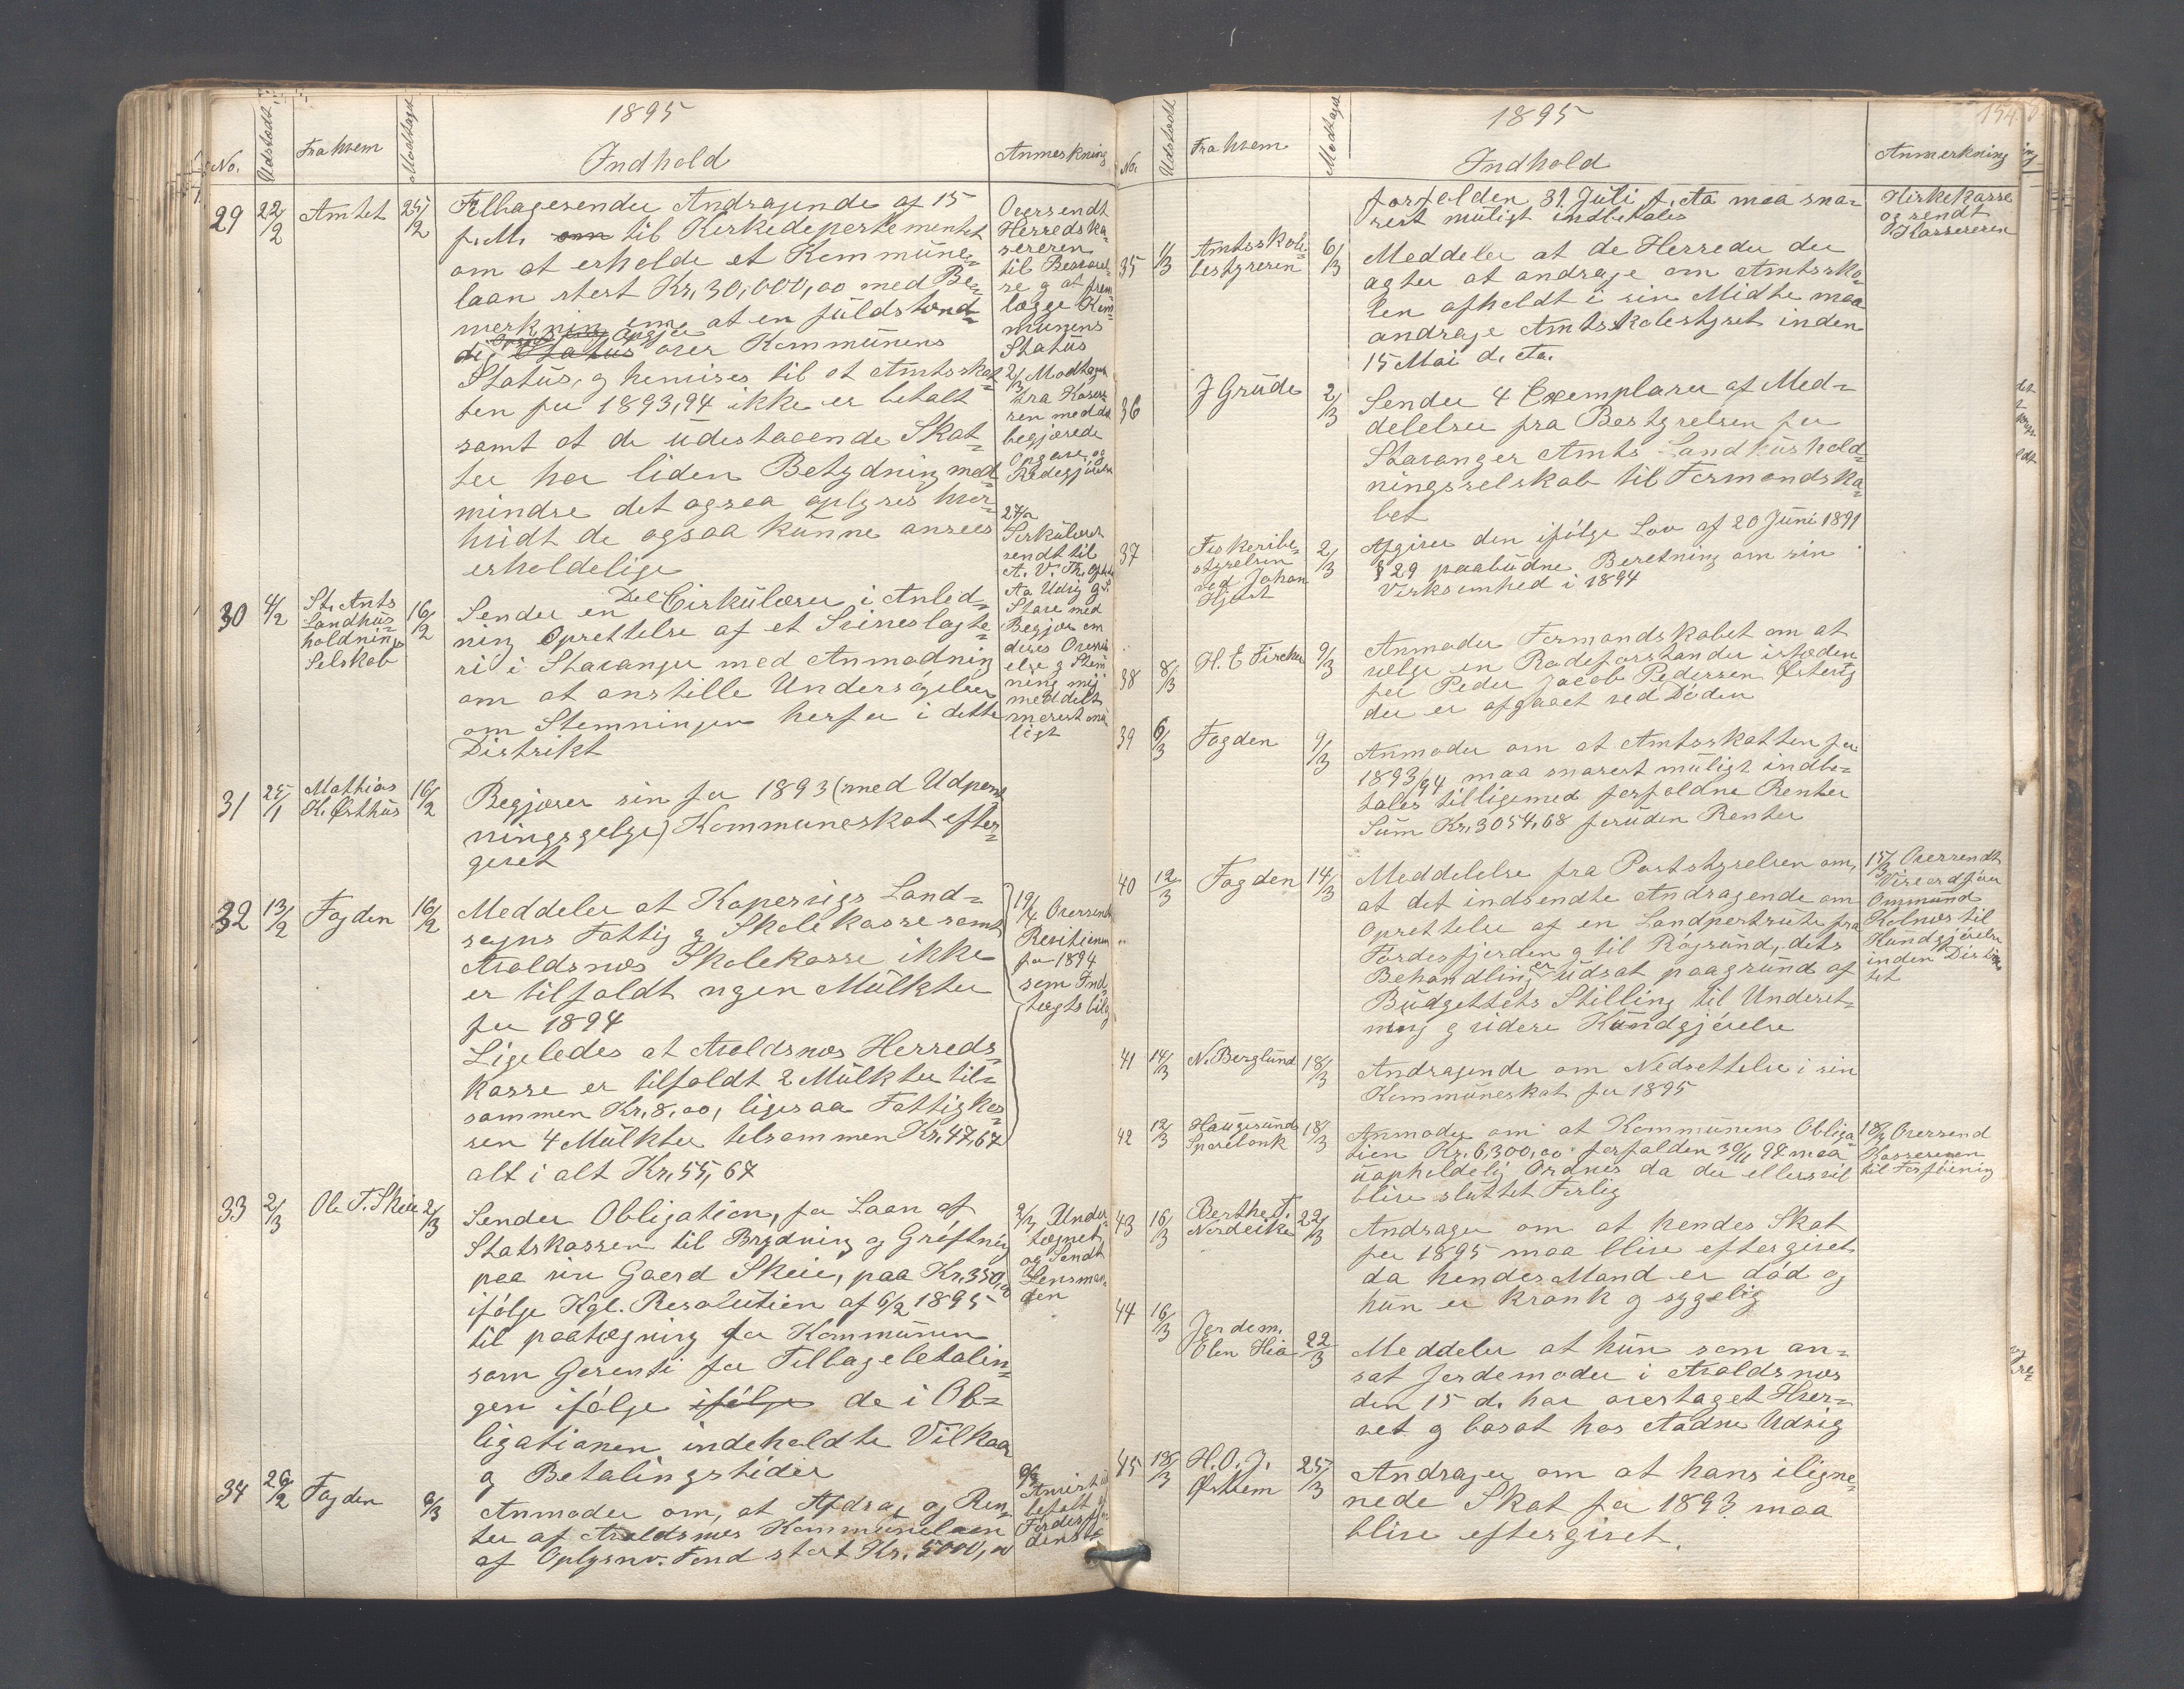 1895
No.
Udstedt
Fra hvem
Modtaget
Indhold
Anmerkning
29
22/2
Amtet
25/2
Tilbagesender Andragende af 15
f. M. om til Kirkedepartementet
om at erholde et Kommune-
laan stort Kr. 30,000,00 med Be-
merkning om at en fuldstænd-
dig Status over Kommunens
Status, og henvises til at Amtsskat-
ten for 1893,94 ikke er betalt
samt at de udestaaende Skat-
ter har liden Betydning med
mindre det ogsaa oplyses hvor-
hvidt de ogsaa kunne ansees
erholdelige
Oversendt
Herredska-
sereren
til Besvarel-
se og at frem
lægge Kom-
munens
Status
2/3 Modtaget
fra Kasse-
ren med de
begjærede
Opgave og
Redegjørelse
30
4/2
St. Amts
Landhus-
holdnings
Selskab
16/2
Sender en Del Cirkulærer i Anled-
ning Oprettelse af et Svineslagte-
ri i Stavanger med Anmodning
om at anstille Undersøgelser
om Stemningen herfor i dette
Distrikt
27/2
Sirkulæret
sendt til
Aa Udvig og S.
Stave med
Begjær om
deres Overvei
else og Stem
ning mig
meddelt
snarest mu
ligt
31
25/1
Mathias
K. Østhus
16/2
Begjærer sin for 1893 (med Udpant
ningsgelyr) Kommuneskat efter-
givet
32
13/2
Fogden
16/2
Meddeler at Kopervigs Land-
sogns Fattig og Skolekasse samt
Avaldsnes Skolekasse ikke
er tilfaldt nogen Mulkter
for 1894
Ligeledes at Avaldsnes Herreds-
kasse er tilfaldt 2 Mulkter til-
sammen Kr. 8,00, ligesaa Fattigkas-
sen 4 Mulkter tilsammen Kr. 47,67
alt i alt Kr. 55,67
Oversendt
Revisionen
for 1894
som Ind-
tægtsbilag
33
2/3
Ole T. Skeie
2/3
Sender Obligation, for Laan af
Statskassen til Brydning og Grøftning
paa sin Gaard Skeie, paa Kr. 350,00
ifølge Kgl. Resolution af 6/2 1895
til paategning for Kommunen
som Garanti for Tilbagebetalin-
gen ifølge ifølge de i Ob-
ligationen indeholdte Vilkaar
og Betalingstider
2/3 Under
tegnet
og Sendt
Lensman-
den
34
26/2
Fogden
6/3
Anmoder om, at Afdrag og Ren-
ter af Avaldsnes Kommunelaan
af Oplysnv. Fond stort Kr. 5000,00
1895
154
No.
Udstedt
Fra hvem
Modtaget
Indhold
Anmerkning
forfalden 31. Juli f. Aa maa sna-
rest muligt indbetales
Kirkekasse
og sendt
Kassereren
35
1/3
Amtsskole-
bestyreren
6/3
Meddeler at de Herreder der
agter at andrage om Amtssko-
len afholdt i sin Midte maa
andrage Amtsskolestyret inden
15 Mai d. Aa.
36
J Grude
2/3
Sender 4 Exemplarer af Med-
delelser fra Bestyrelsen for
Stavanger Amts Landhushold-
ningsselskab til Formandska-
bet
37
Fiskeribe-
styrelsen
ved Johan
Hjort
2/3
Afgiver den ifølge Lov af 20 Juni 1891
§ 29 paabudne Beretning om sin
Virksomhed i 1894
38
8/3
H. E Fircher
9/3
Anmoder Formandskabet om at
vælge en Rodeforstander istæden
for Peder Jacob Pedersen Østevig
der er afgaaet ved Døden
39
6/3
Fogden
9/3
Anmoder om at Amtsskatten for
1893/94 maa snarest muligt indbe-
tales tilligemed forfaldne Renter
Sum Kr. 3054,68 foruden Renter
40
12/3
Fogden
14/3
Meddelelse fra Poststyrelsen om,
at det indsendte Andragende om
Oprettelse af en Landpostrute fra
Førdesfjorden og til Røgsund, dets
Behandling er udsat paagrund af
Budgettets Stilling til Underet-
ning og videre Kundgjørelse
15/3 Oversendt
Viseordfører
Ommund
Kolnes til
Kundgjørelse
inden Distrik
tet
41
14/3
N. Berglund
18/3
Andragende om Nedsettelse i sin
Kommuneskat for 1895
42
12/3
Haugesunds
Sparebank
18/3
Anmoder om at Kommunens Obliga-
tion Kr. 6,300,00 forfalden 30/11 94 maa
uopholdelig Ordnes da der ellers vil
blive sluttet Forlig
18/3 Oversend
Kassereren
til Forføining
43
16/3
Berthe T.
Nordeike
22/3
Andrager om at hendes Skat
for 1895 maa blive eftergivet
da hendes Mand er død og
hun er krank og sygelig
44
16/3
Jordem.
Olen Hia
22/3
Meddeler at hun som an-
sat Jordemoder i Avaldsnes
den 15 d. har overtaget Hver-
vet og bosat hos Aadne Udvig
45
18/3
H. O. J.
Østhem
25/3
Andrager om at hans iligne-
nede Skat for 1893 maa
blive eftergivet.